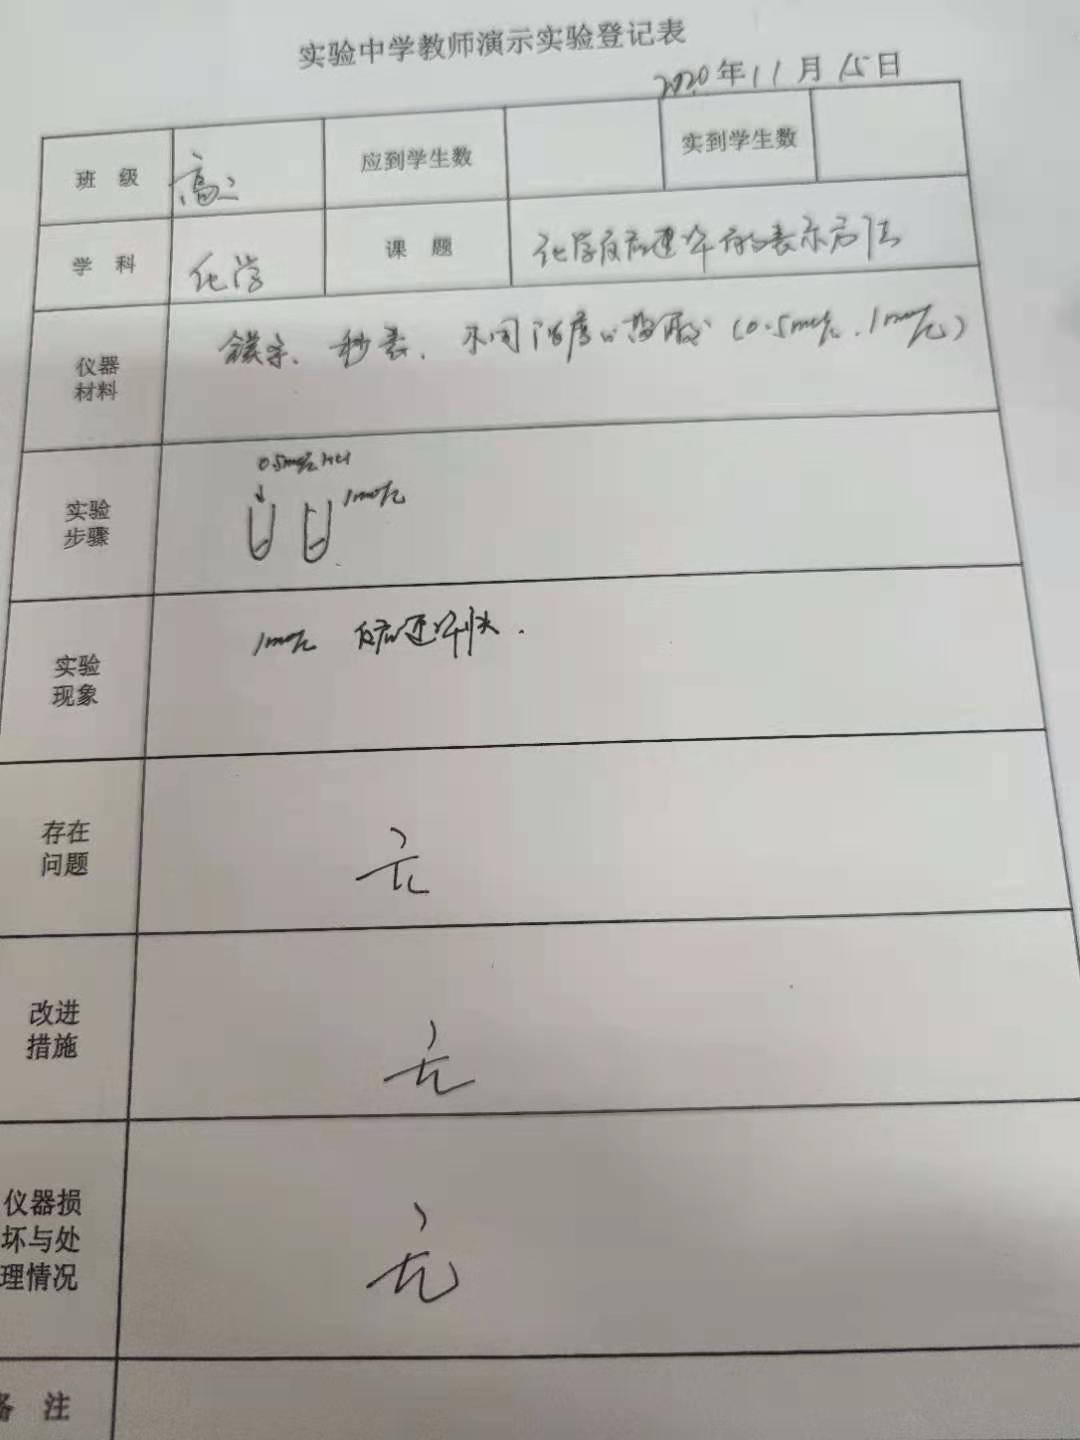 实验中学教师演示实验登记表
2020年11月15日
班 级 高二 应到学生数 实到学生数
学 科 化学 课 题 化学反应速率的表示方法
仪器
材料
镁条、秒表、不同浓度的盐酸(0.5mol/L、1mol/L)
实验
步骤
0.5mol/L HCl
1mol/L
实验
现象
1mol/L 反应速率快.
存在
问题
无
改进
措施
无
仪器损
坏与处
理情况
无
备 注